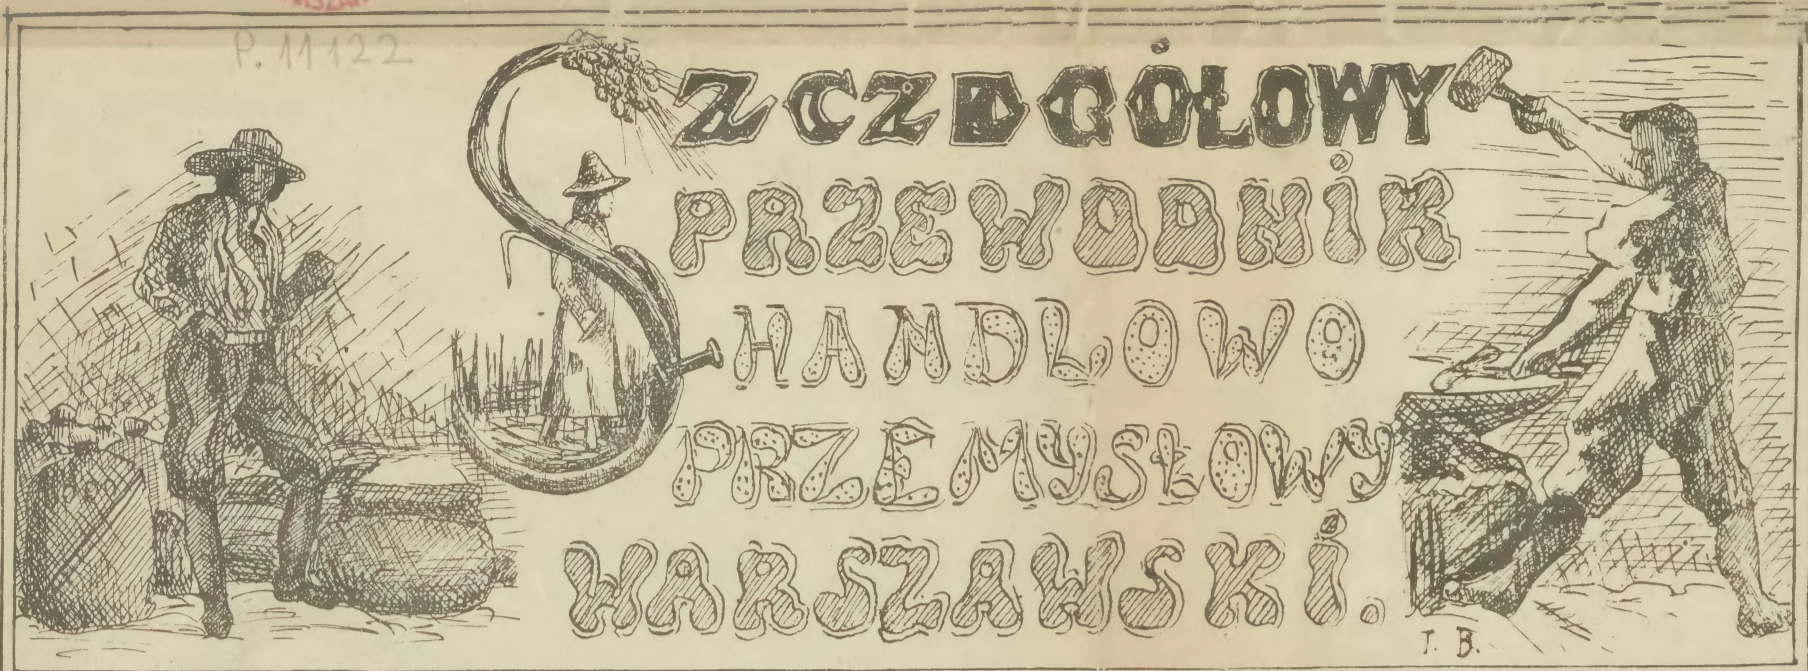 P. 11122
SZCZEGÓŁOWY
PRZEWODNIK
HANDLOWO
PRZEMYSŁOWY
WARSZAWSKI.
T. B.